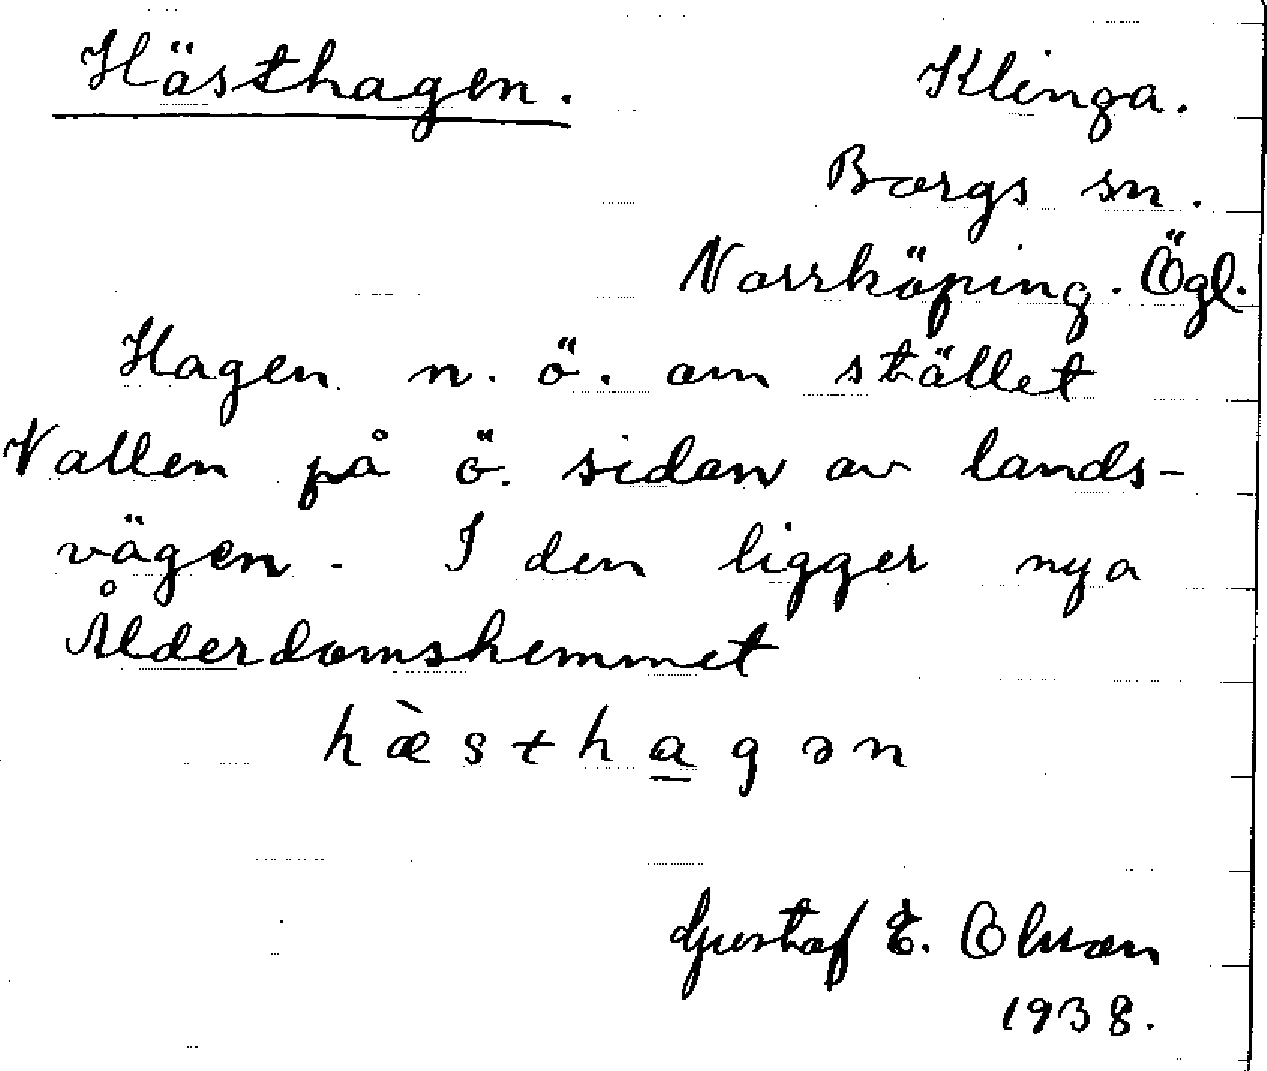 Hästhagen.
Klinga.
Borgs sn.
Norrköping. Ögl.
Hagen n. ö. om stället
Vallen på ö. sidan av lands-
vägen. I den ligger nya
Ålderdomshemmet
hæ̀sthagən
Gustaf E. Olsson
1938.